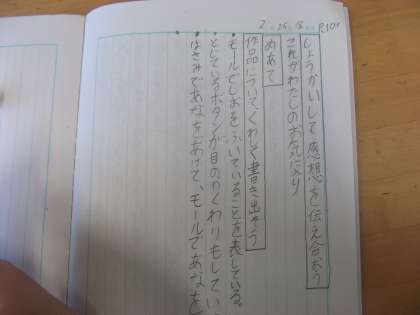 2 25 金 P.104
しょうかいして感想を伝え合おう
これがわたしのお気に入り
めあて
作品について、くわしく書き出そう
・モールでしおをふいていることを表している。
・とじているボタンが目のかくわりもしてい
・はさみであなをあけて、モールであなを